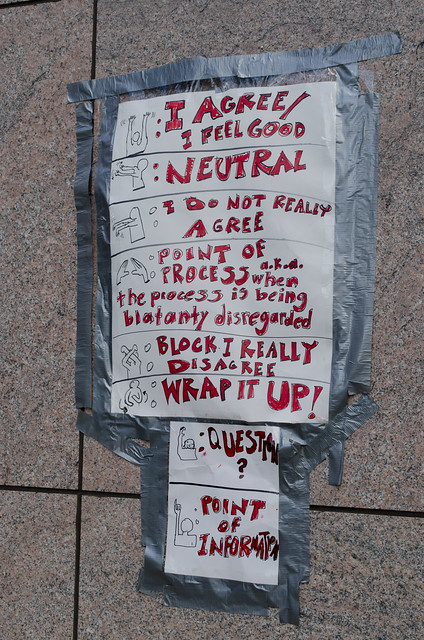 : I AGREE/
I FEEL GOOD
: NEUTRAL
: I DO NOT REALLY
AGREE
: POINT OF
PROCESS a.k.a.
when
the process is being
blatanty disregarded
: BLOCK. I REALLY
DISAGREE
: WRAP IT UP!
: QUESTION
?
: POINT
OF
INFORMATION